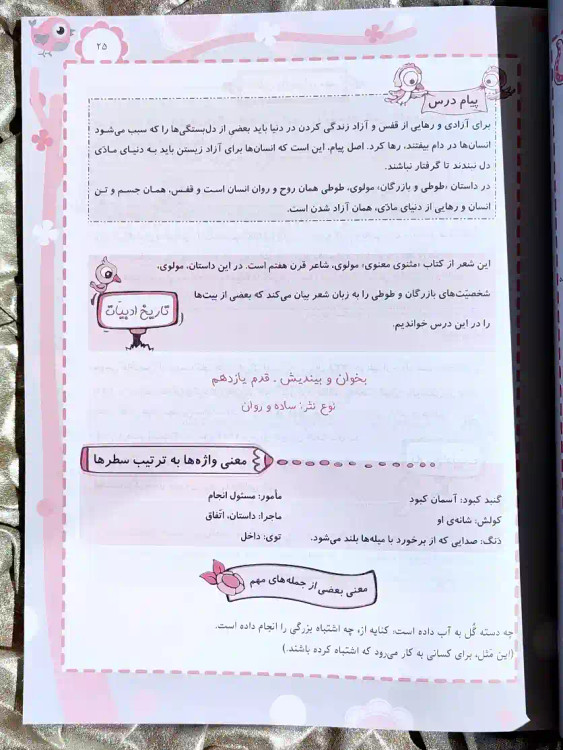 ۲۵
پیام درس
برای آزادی و رهایی از قفس و آزاد زندگی کردن در دنیا باید بعضی از دل‌بستگی‌ها را که سبب می‌شود
انسان‌ها در دام بیفتند، رها کرد. اصل پیام، این است که انسان‌ها برای آزاد زیستن باید به دنیای مادّی
دل نبندند تا گرفتار نباشند.
در داستان «طوطی و بازرگان» مولوی، طوطی همان روح و روان انسان است و قفس، همان جسم و تن
انسان و رهایی از دنیای مادّی، همان آزاد شدن است.
این شعر از کتاب «مثنوی معنوی» مولوی، شاعر قرن هفتم است. در این داستان، مولوی،
شخصیّت‌های بازرگان و طوطی را به زبان شعر بیان می‌کند که بعضی از بیت‌ها
را در این درس خواندیم.
تاریخ ادبیّات
بخوان و بیندیش . قدم یازدهم
نوع نثر: ساده و روان
معنی واژه‌ها به ترتیب سطرها
گنبد کبود: آسمان کبود
کولش: شانه‌ی او
دَنگ: صدایی که از برخورد با میله‌ها بلند می‌شود.
مأمور: مسئول انجام
ماجرا: داستان، اتّفاق
توی: داخل
معنی بعضی از جمله‌های مهم
چه دسته گُل به آب داده است: کنایه از، چه اشتباه بزرگی را انجام داده است.
(این مَثل، برای کسانی به کار می‌رود که اشتباه کرده باشند.)